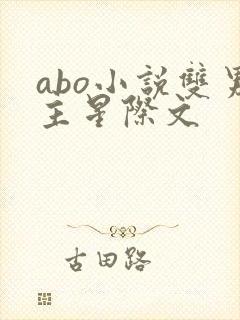 abo小説雙男
主星際文
古田路